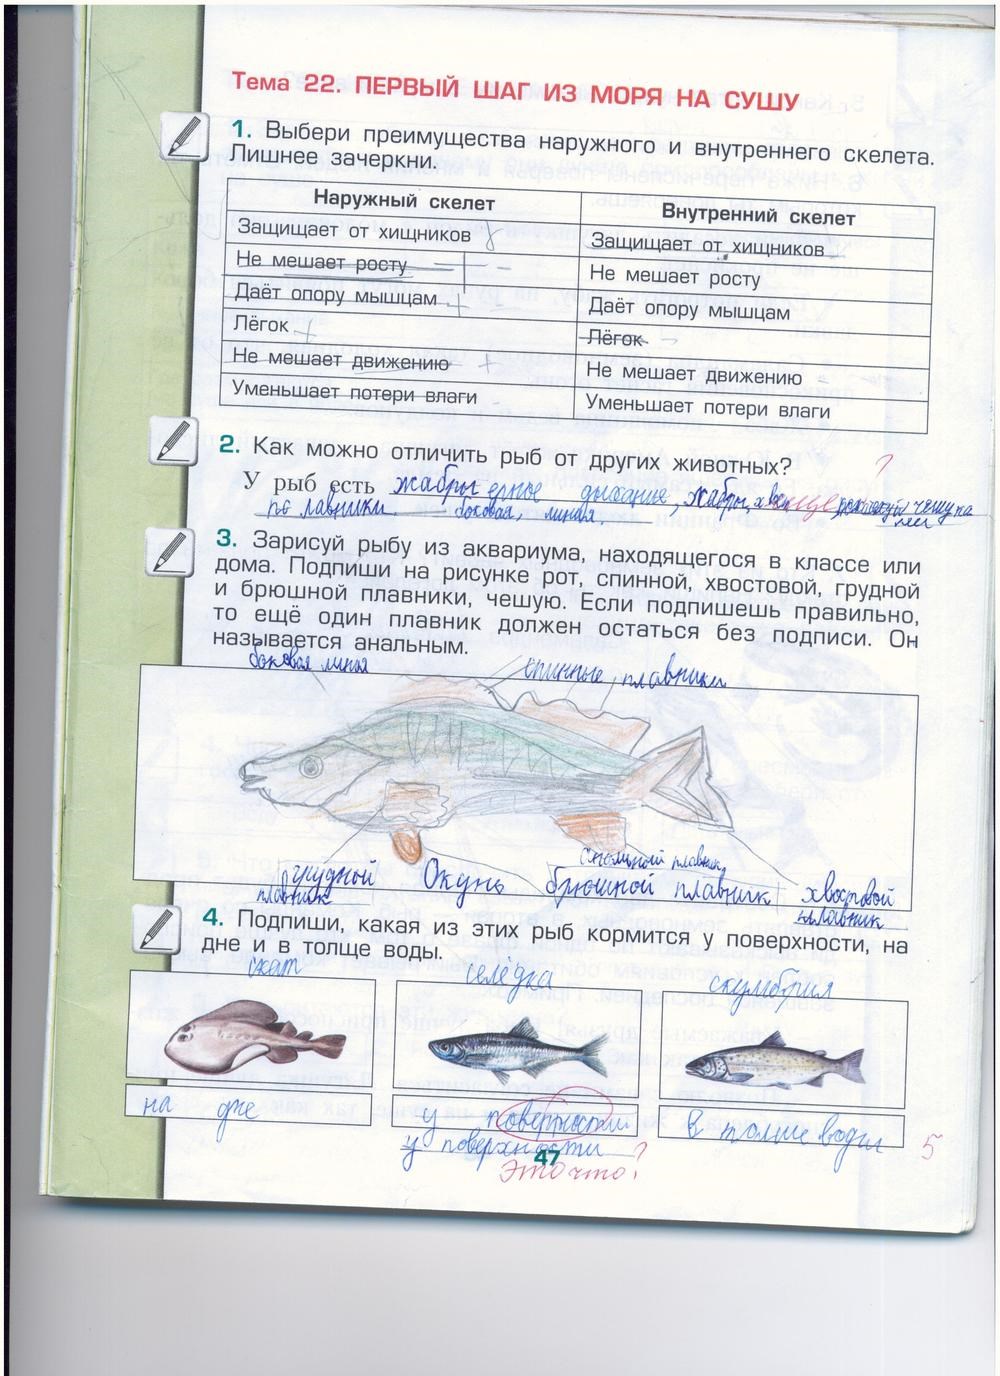 Тема 22. ПЕРВЫЙ ШАГ ИЗ МОРЯ НА СУШУ
1. Выбери преимущества наружного и внутреннего скелета.
Лишнее зачеркни.
Наружный скелет Внутренний скелет
Защищает от хищников Защищает от хищников
Не мешает росту Не мешает росту
Даёт опору мышцам Даёт опору мышцам
Лёгок Лёгок
Не мешает движению Не мешает движению
Уменьшает потери влаги Уменьшает потери влаги
2. Как можно отличить рыб от других животных?
?
У рыб есть жаберное дыхание, жабры, хвост чешуя
плавники. боковая линия.
3. Зарисуй рыбу из аквариума, находящегося в классе или
дома. Подпиши на рисунке рот, спинной, хвостовой, грудной
и брюшной плавники, чешую. Если подпишешь правильно,
то ещё один плавник должен остаться без подписи. Он
называется анальным.
боковая линия спинные плавники
грудной плавник Окунь брюшной плавник хвостовой плавник
4. Подпиши, какая из этих рыб кормится у поверхности, на
дне и в толще воды.
скат селёдка скумбрия
на дне у поверхности в толще воды
у поверхности
47
Это что?
5